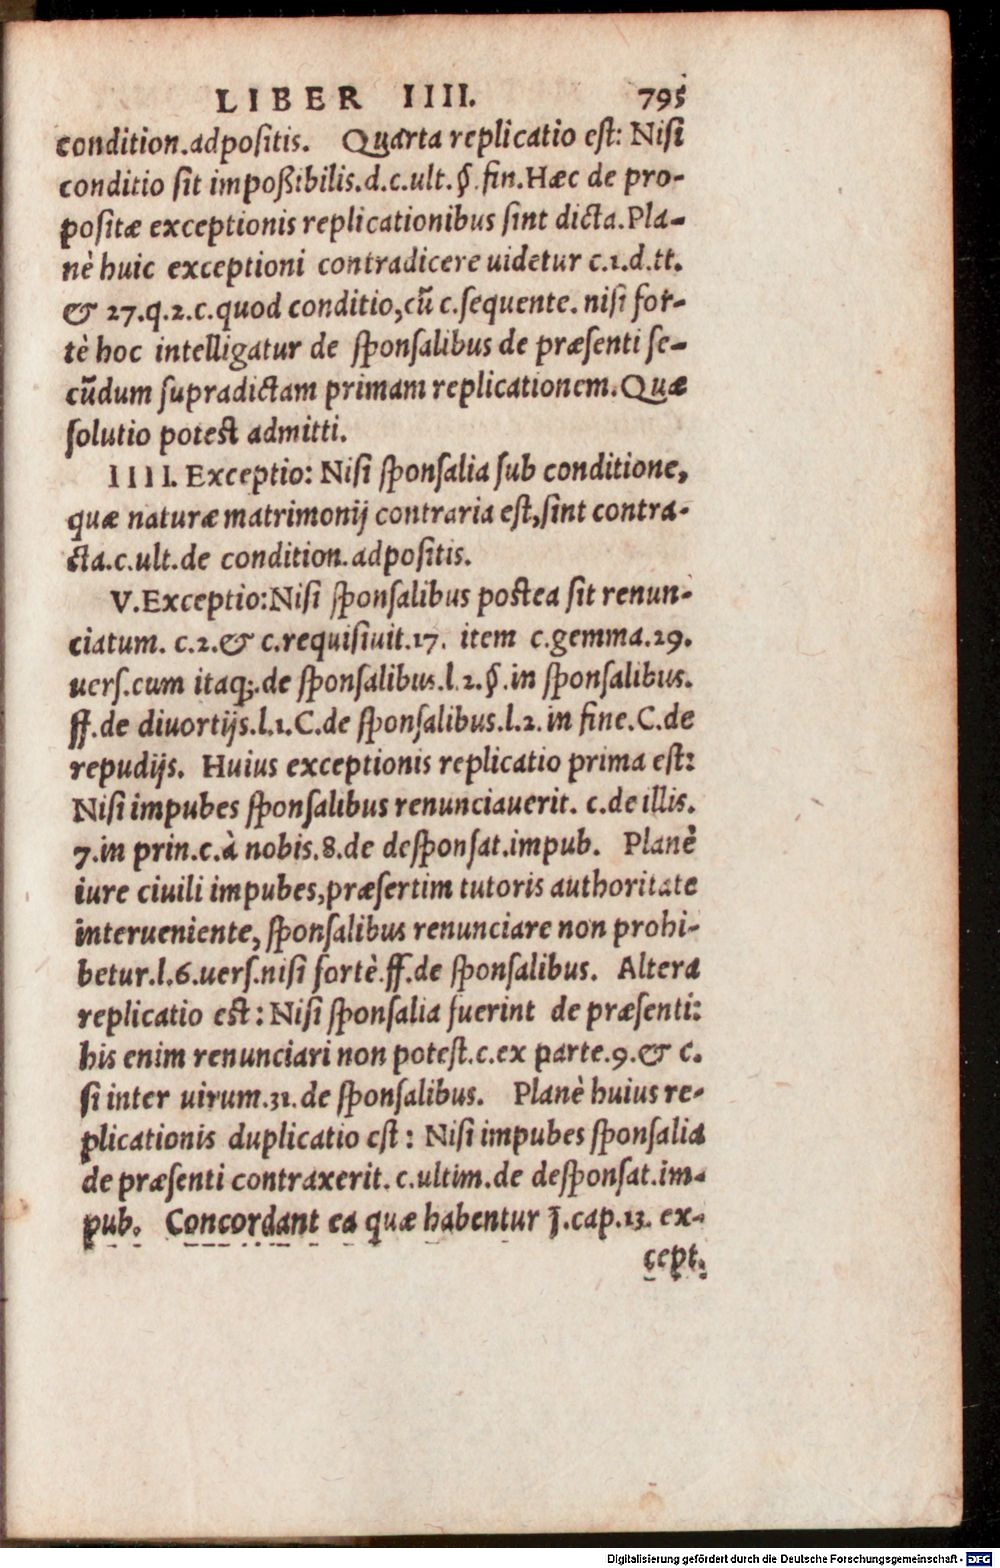 LIBER IIII. 795
condition.adpositis. Quarta replicatio eſt: Niſi
conditio ſit impoßibilis.d.c.ult.§.fin.Hæc de pro-
poſitæ exceptionis replicationibus ſint dicta.Pla-
nè huic exceptioni contradicere uidetur c.1.d.tt.
& 27.q.2.c.quod conditio,cũ c.ſequente. niſi for-
tè hoc intelligatur de ſponſalibus de præſenti ſe-
cũdum ſupradictam primam replicationem.Quæ
ſolutio potest admitti.
IIII. Exceptio: Niſi ſponſalia ſub conditione,
quæ naturæ matrimonij contraria eſt,ſint contra-
cta.c.ult.de condition.adpoſitis.
V.Exceptio:Niſi ſponſalibus postea ſit renun-
ciatum. c.2.& c.requiſiuit.17. item c.gemma.29.
uerſ.cum itaq;.de ſponſalibus.l.2.§.in ſponſalibus.
ff.de diuortijs.l.1.C.de ſponſalibus.l.2.in fine.C.de
repudijs. Huius exceptionis replicatio prima eſt:
Niſi impubes ſponſalibus renunciauerit. c.de illis.
7.in prin.c.à nobis.8.de deſponſat.impub. Planè
iure ciuili impubes,præſertim tutoris authoritate
interueniente, ſponſalibus renunciare non prohi-
betur.l.6.uerſ.niſi fortè.ff.de ſponſalibus. Altera
replicatio eſt: Niſi ſponſalia fuerint de præſenti:
his enim renunciari non poteſt.c.ex parte.9.& c.
ſi inter uirum.31.de ſponſalibus. Planè huius re-
plicationis duplicatio eſt: Niſi impubes ſponſalia
de præſenti contraxerit.c.ultim.de deſponſat.im-
pub. Concordant ea quæ habentur j.cap.13. ex-
cept.
Digitalisierung gefördert durch die Deutsche Forschungsgemeinschaft - DFG